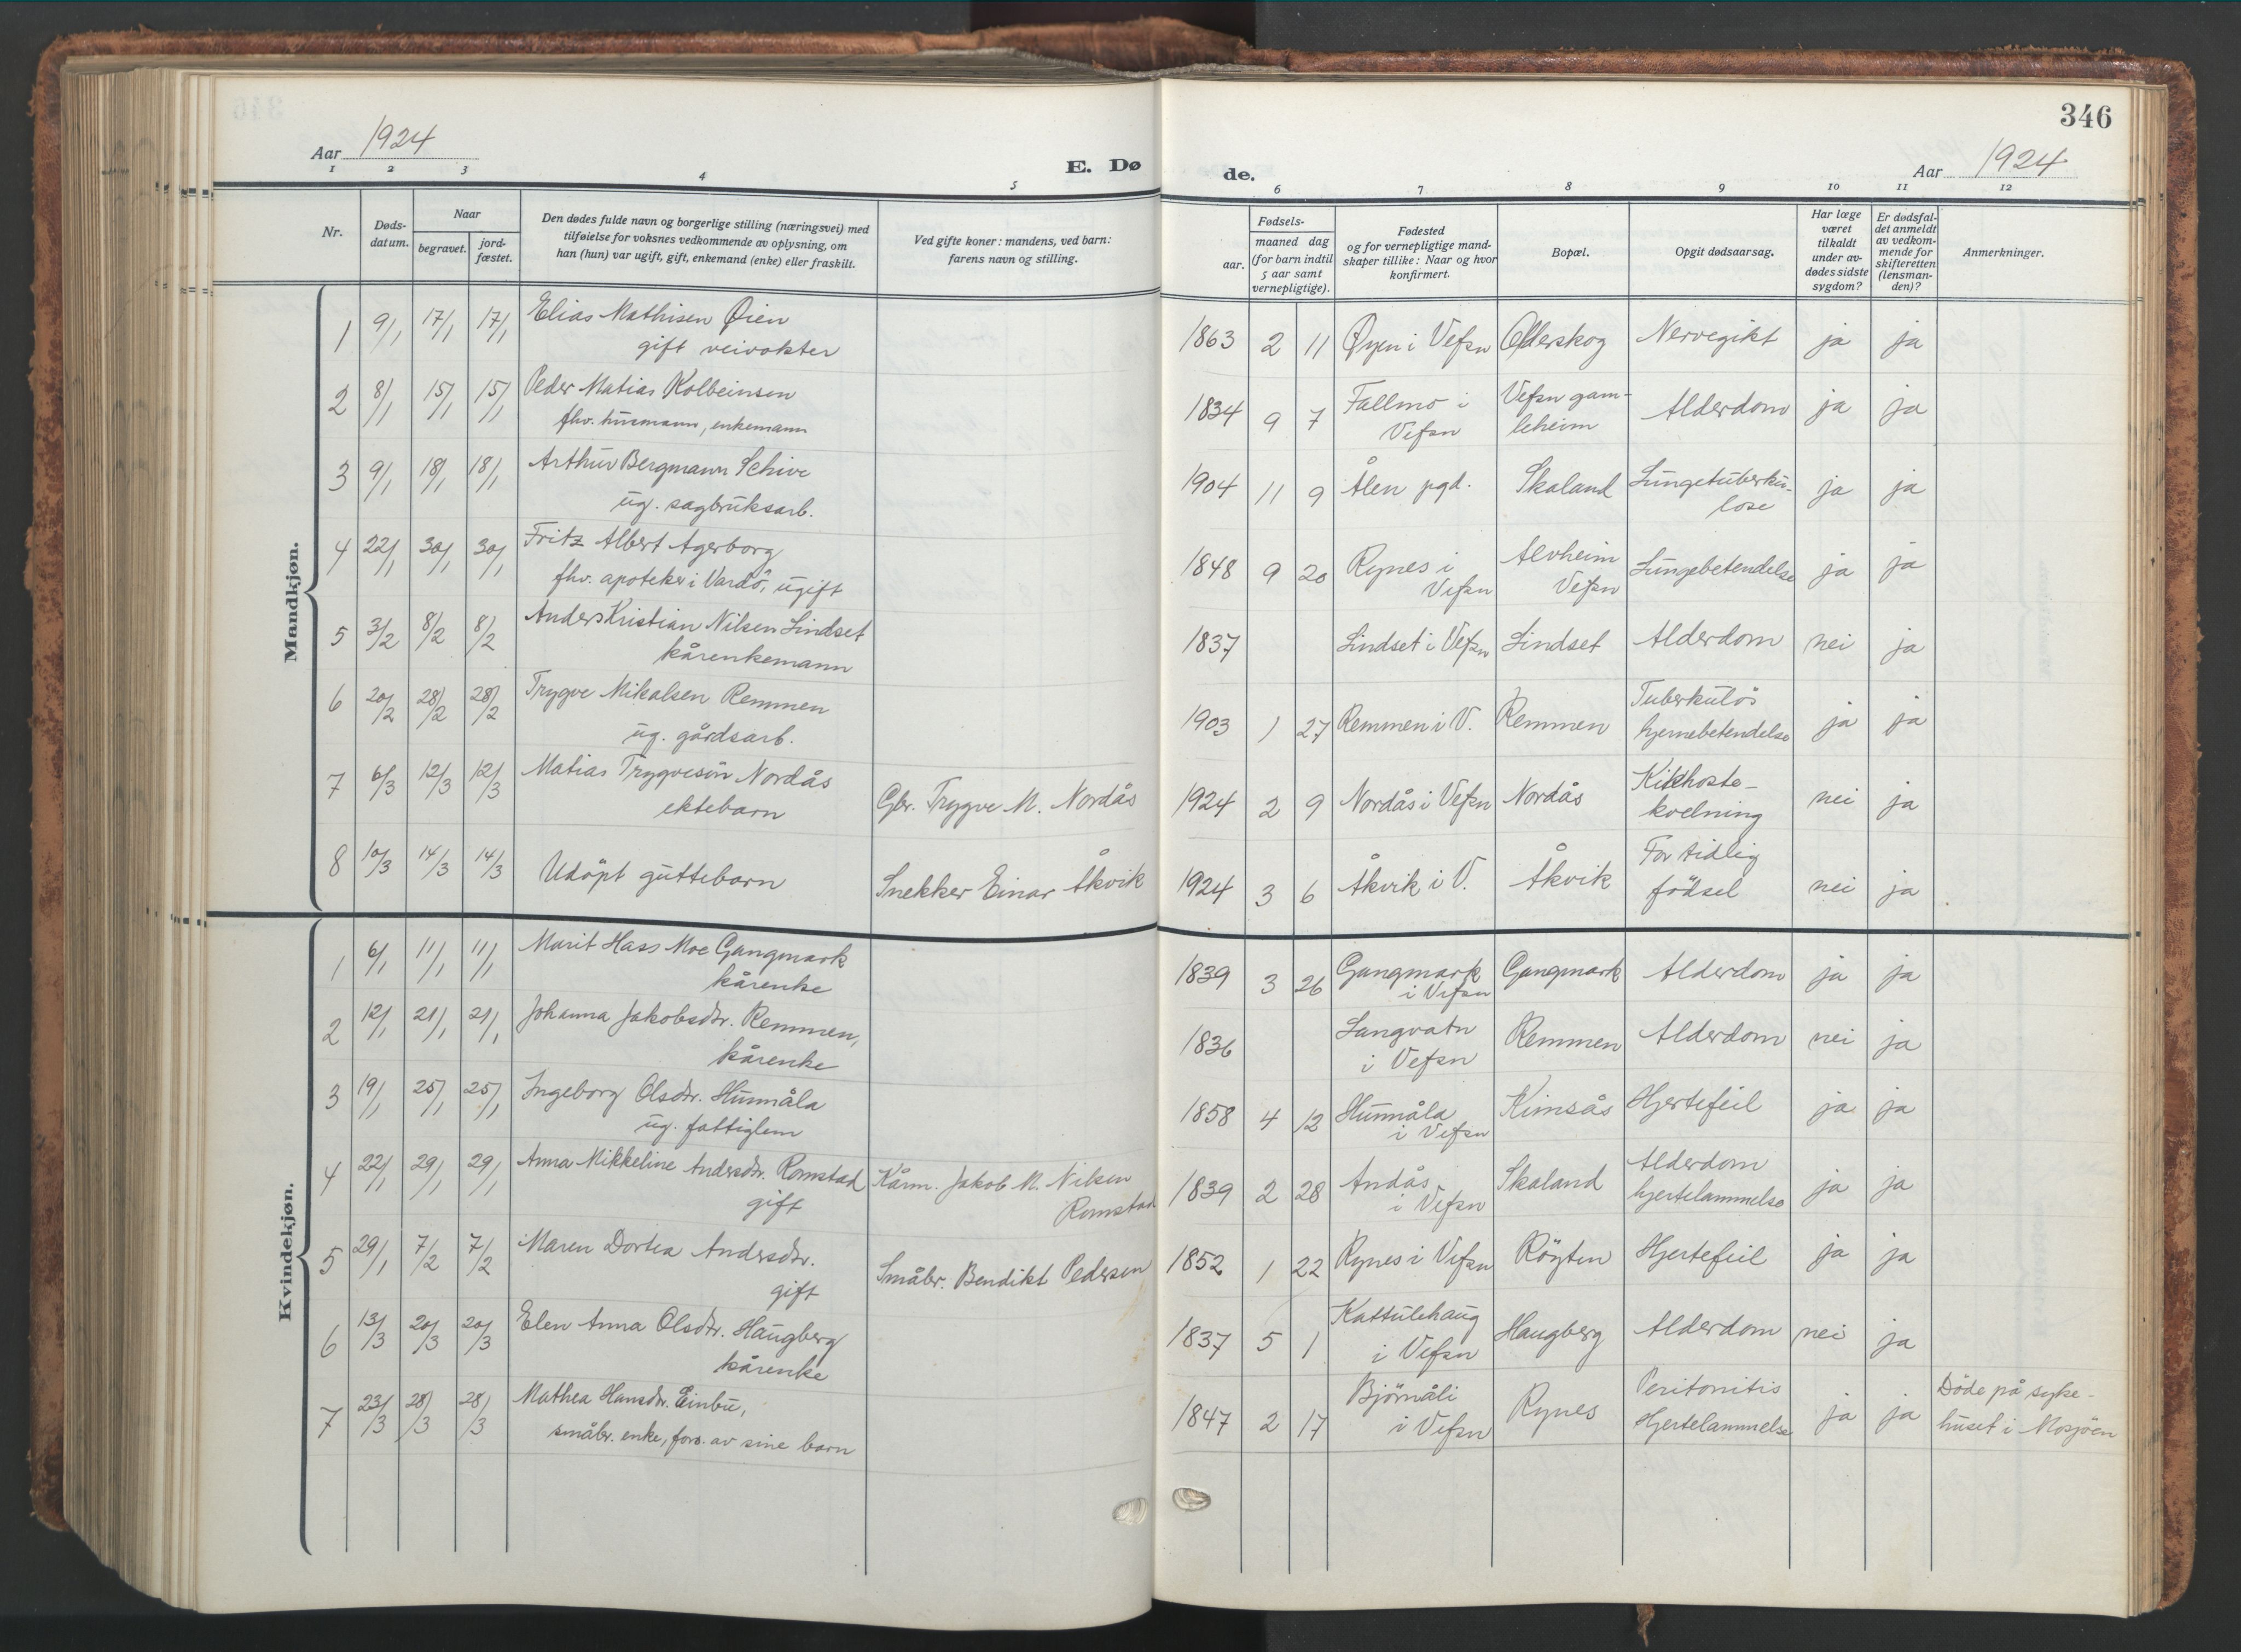 346
Aar 1924
E. Døde.
Aar 1924
1 2 3 4 5 6 7 8 9 10 11 12
Nr.
Døds-
datum.
Naar
begravet.
jord-
fæstet.
Den dødes fulde navn og borgerlige stilling (næringsvei) med
tilføielse for voksnes vedkommende av oplysning, om
han (hun) var ugift, gift, enkemand (enke) eller fraskilt.
Ved gifte koner: mandens, ved barn:
farens navn og stilling.
Fødsels-
aar.
maaned dag
(for barn indtil
5 aar samt
vernepligtige).
Fødested
og for vernepligtige mand-
skaper tillike: Naar og hvor
konfirmert.
Bopæl.
Opgit dødsaarsag.
Har læge
været
tilkaldt
under av-
dødes sidste
sygdom?
Er dødsfal-
det anmeldt
av vedkom-
mende for
skifteretten
(lensman-
den)?
Anmerkninger.
Mandkjøn.
1 9/1 17/1 17/1 Elias Mathisen Øien
gift veivokter
1863 2 11 Øyen i Vefsn Olderskog Nervegikt ja ja
2 8/1 15/1 15/1 Peder Matias Kolbeinsen
fhv. husmann, enkemann
1834 9 7 Fallmo i
Vefsn
Vefsn gam-
leheim
Alderdom ja ja
3 9/1 18/1 18/1 Arthur Bergmann Schive
ug. sagbruksarb.
1904 11 9 Ålen pgd. Skaland Lungetuberku-
lose
ja ja
4 22/1 30/1 30/1 Fritz Albert Agerborg
fhv. apoteker i Vardö, ugift
1848 9 20 Rynes i
Vefsn
Alvheim
Vefsn
Lungebetendelse ja ja
5 3/2 8/2 8/2 Anders Kristian Nilsen Lindset
kårenkemann
1837 Lindset i Vefsn Lindset Alderdom nei ja
6 20/2 28/2 28/2 Trygve Mikalsen Remmen
ug. gårdsarb.
1903 1 27 Remmen i V. Remmen Tuberkulös
hjernebetendelse
ja ja
7 6/3 12/3 12/3 Matias Trygvesön Nordås
ektebarn
Gbr. Trygve M. Nordås
1924 2 9 Nordås i Vefsn Nordås Kikhoste-
kvelning
nei ja
8 10/3 14/3 14/3 Udöpt guttebarn
Snekker Einar Åkvik
1924 3 6 Åkvik i V. Åkvik For tidlig
födsel
nei ja
Kvindekjøn.
1 6/1 11/1 11/1 Marit Hass Moe Gangmark
kårenke
1839 3 26 Gangmark
i Vefsn
Gangmark Alderdom ja ja
2 12/1 21/1 21/1 Johanna Jakobsdtr. Remmen,
kårenke
1836 Langvatn
i Vefsn
Remmen Alderdom nei ja
3 19/1 25/1 25/1 Ingeborg Olsdtr. Hunnåla
ug. fattiglem
1858 4 12 Hunnåla
i Vefsn
Kimsås Hjertefeil ja ja
4 22/1 29/1 29/1 Anna Mikkeline Andersdtr. Romstad
gift
Kårm. Jakob M. Nilsen
Romstad
1839 2 28 Andås
i Vefsn
Skaland Alderdom
hjertelammelse
ja ja
5 29/1 7/2 7/2 Maren Dortea Andersdtr.
gift
Småbr. Bendikt Pedersen
1852 1 22 Rynes i Vefsn Röyten Hjertefeil ja ja
6 13/3 20/3 20/3 Elen Anna Olsdtr. Haugberg
kårenke
1837 5 1 Kattulehaug
i Vefsn
Haugberg Alderdom nei ja
7 23/3 28/3 28/3 Mathea Hansdtr. Einbu,
småbr. enke, fors. av sine barn
1847 2 17 Björnåli
i Vefsn
Rynes Peritonitis
Hjertelammelse
ja ja Döde på syke-
huset i Mosjöen